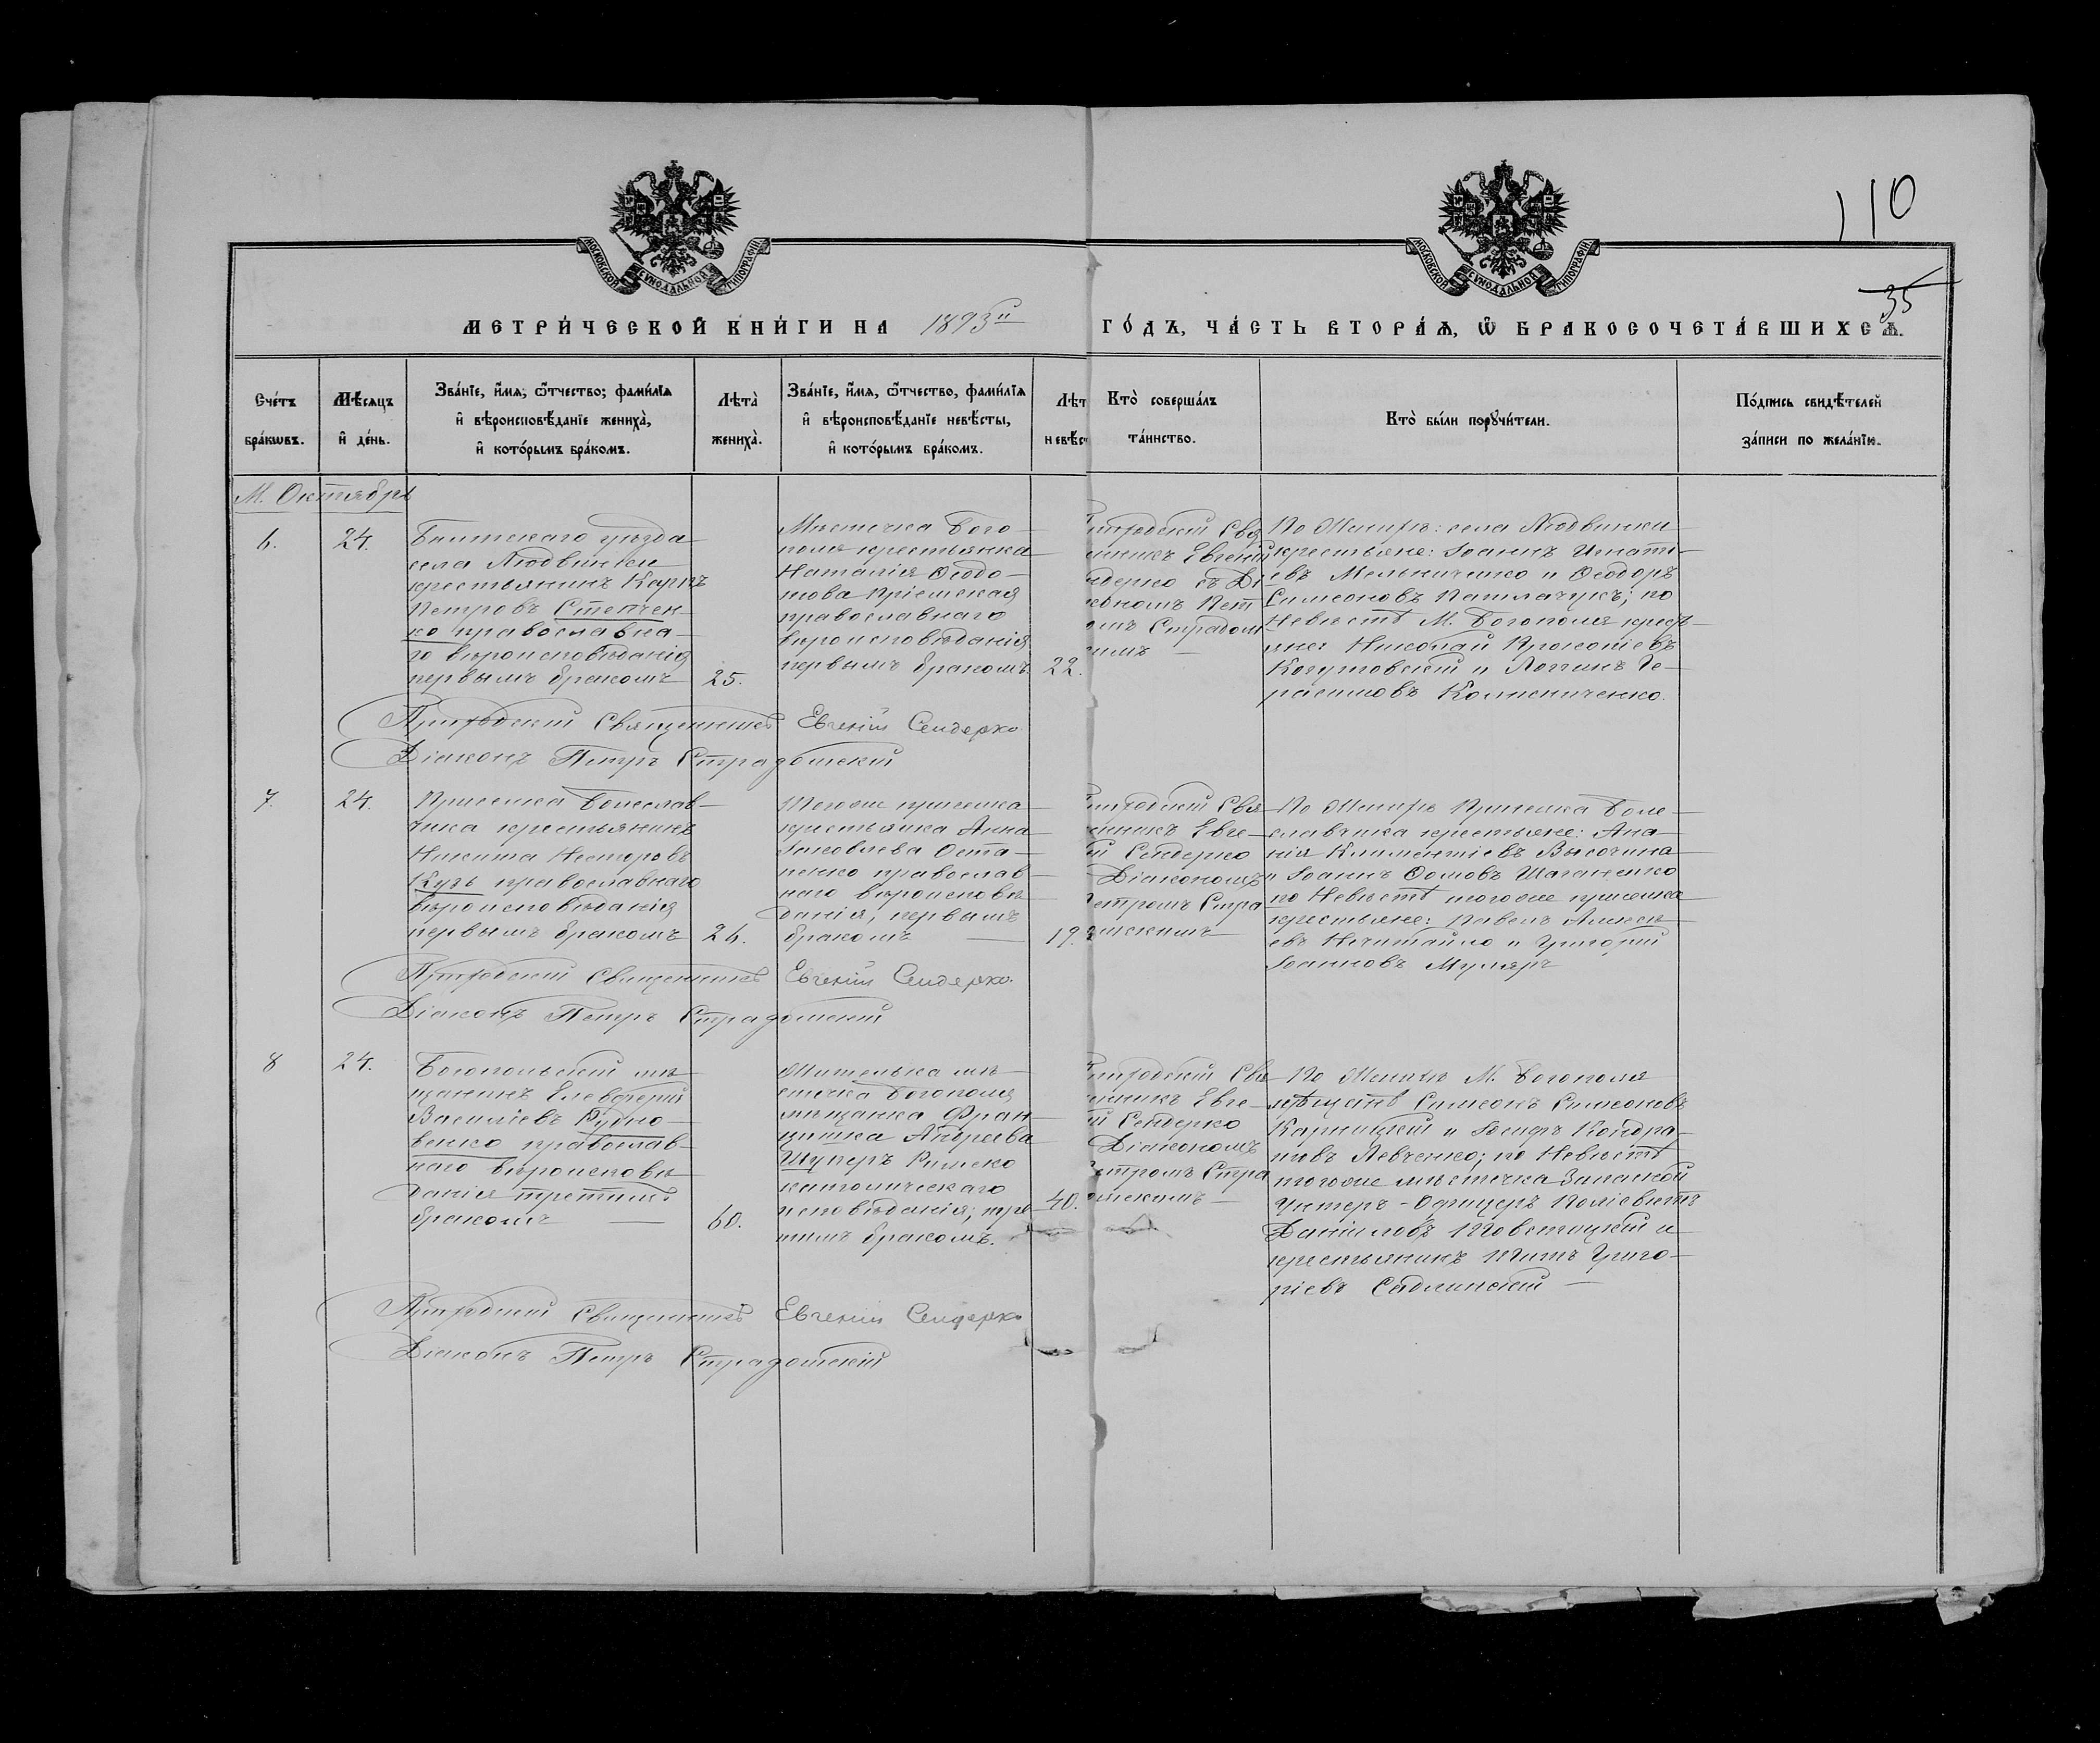 110
35
МОСКОВСКОЙ СѴНОДАЛЬНОЙ ТИПОГРАФІИ
МОСКОВСКОЙ СѴНОДАЛЬНОЙ ТИПОГРАФІИ
МЕТРИ́ЧЕСКОЙ КНИ́ГИ НА 1893й ГО́ДЪ, ЧА́СТЬ ВТОРА́Ѧ, Ѽ БРАКОСОЧЕТА́ВШИХСѦ.
Сче́тъ бра́кѡвъ.
Мѣ́сяцъ и҆ де́нь.
Зва́нїе, и҆́мѧ, ѻ҆́тчество, фами́лїѧ
и҆ вѣроисповѣ́данїе жениха̀,
и҆ кото́рымъ бра́комъ.
Лѣта̀ жениха̀.
Зва́нїе, и҆́мѧ, ѻ҆́тчество, фами́лїѧ
и҆ вѣроисповѣ́данїе невѣ́сты,
и҆ кото́рымъ бра́комъ.
Лѣт
невѣс
Кто̀ соверша́лъ
та́инство.
Кто̀ бы́ли порꙋчи́тели.
По́дпись свидѣ́телей
за́писи по жела́нїю.
М. Октябрь
6.
24.
Балтскаго уѣзда
села Людвинки
крестьянинъ Карпъ
Петровъ Степчен-
ко православна-
го вѣроисповѣданія
первымъ бракомъ
25.
Мѣстечка Бого-
поля крестьянка
Наталія Ѳеодо-
това
православнаго
вѣроисповѣданія
первымъ бракомъ.
22.
Евгеній
Пет
По Жениху: села Людвинки
крестьяне: Іоаннъ Игнаті-
евъ Мельниченко и Ѳеодоръ
Симеоновъ Папачукъ; по
Невѣстѣ М. Богополя крест
яне: Николай Прокопіевъ
Когутовскій и Логинъ Ге-
расимовъ
Священникъ Евгеній Сендерко
Діаконъ Петръ Страдомскій
7.
24.
Приселка Болеслав-
чика крестьянинъ
Никита Несторовъ
Куць православнаго
вѣроисповѣданія
первымъ бракомъ
26.
Тогоже приселка
крестьянка Анна
Іаковлева Оста-
пенко православ-
наго вѣроисповѣ-
данія, первымъ
бракомъ
19.
Евге-
Сендерко
Діакономъ
По Жениху Приселка Боле-
славчика крестьяне: Ана-
нія Климентіевъ Высочина
и Іоаннъ Ѳомовъ
по Невѣстѣ тогоже приселка
крестьяне: Павелъ Алексе-
евъ Нечитайло и Григорій
Іоанновъ Муляръ
Священникъ Евгеній Сендерко.
Діаконъ Петръ Страдомскій
8
24.
Богопольскій мѣ-
щанинъ Елевферій
Василіевъ Рудно-
венко православ-
наго вѣроисповѣ-
данія третьимъ
бракомъ
60.
Жителька мѣ-
стечка Богополя
мѣщанка Фран-
цишка Андреева
Шуперъ Римско
католическаго
исповѣданія; тре-
тимъ бракомъ.
40.
Евге-
Сендерко
Діакономъ
По Жениху М. Богополя
мѣщане Симеонъ Симеоновъ
Карницкій и Іосифъ Кондра-
товъ Левченко; по Невѣстѣ
тогоже мѣстечка Запасной
Унтеръ-Офицеръ
Даніиловъ и
крестьянинъ Титъ Григо-
ріевъ Садлинскій
Священникъ Евгеній Сендерко
Діаконъ Петръ Страдомскій